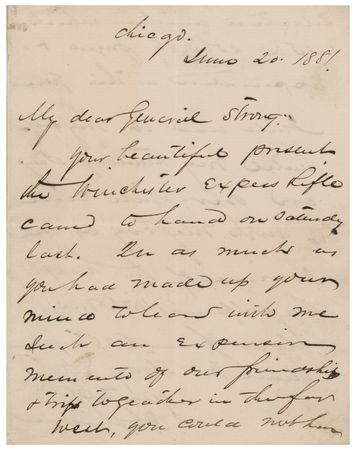 Chicgo.
June 20. 1881.
My dear General Strong:
Your beautiful present
the Winchester Express Rifle
came to hand on Saturday
last. In as much as
you had made up your
mind to leave with me
such an expensive
memento of our friendship
& trip together in the far
West, you could not have